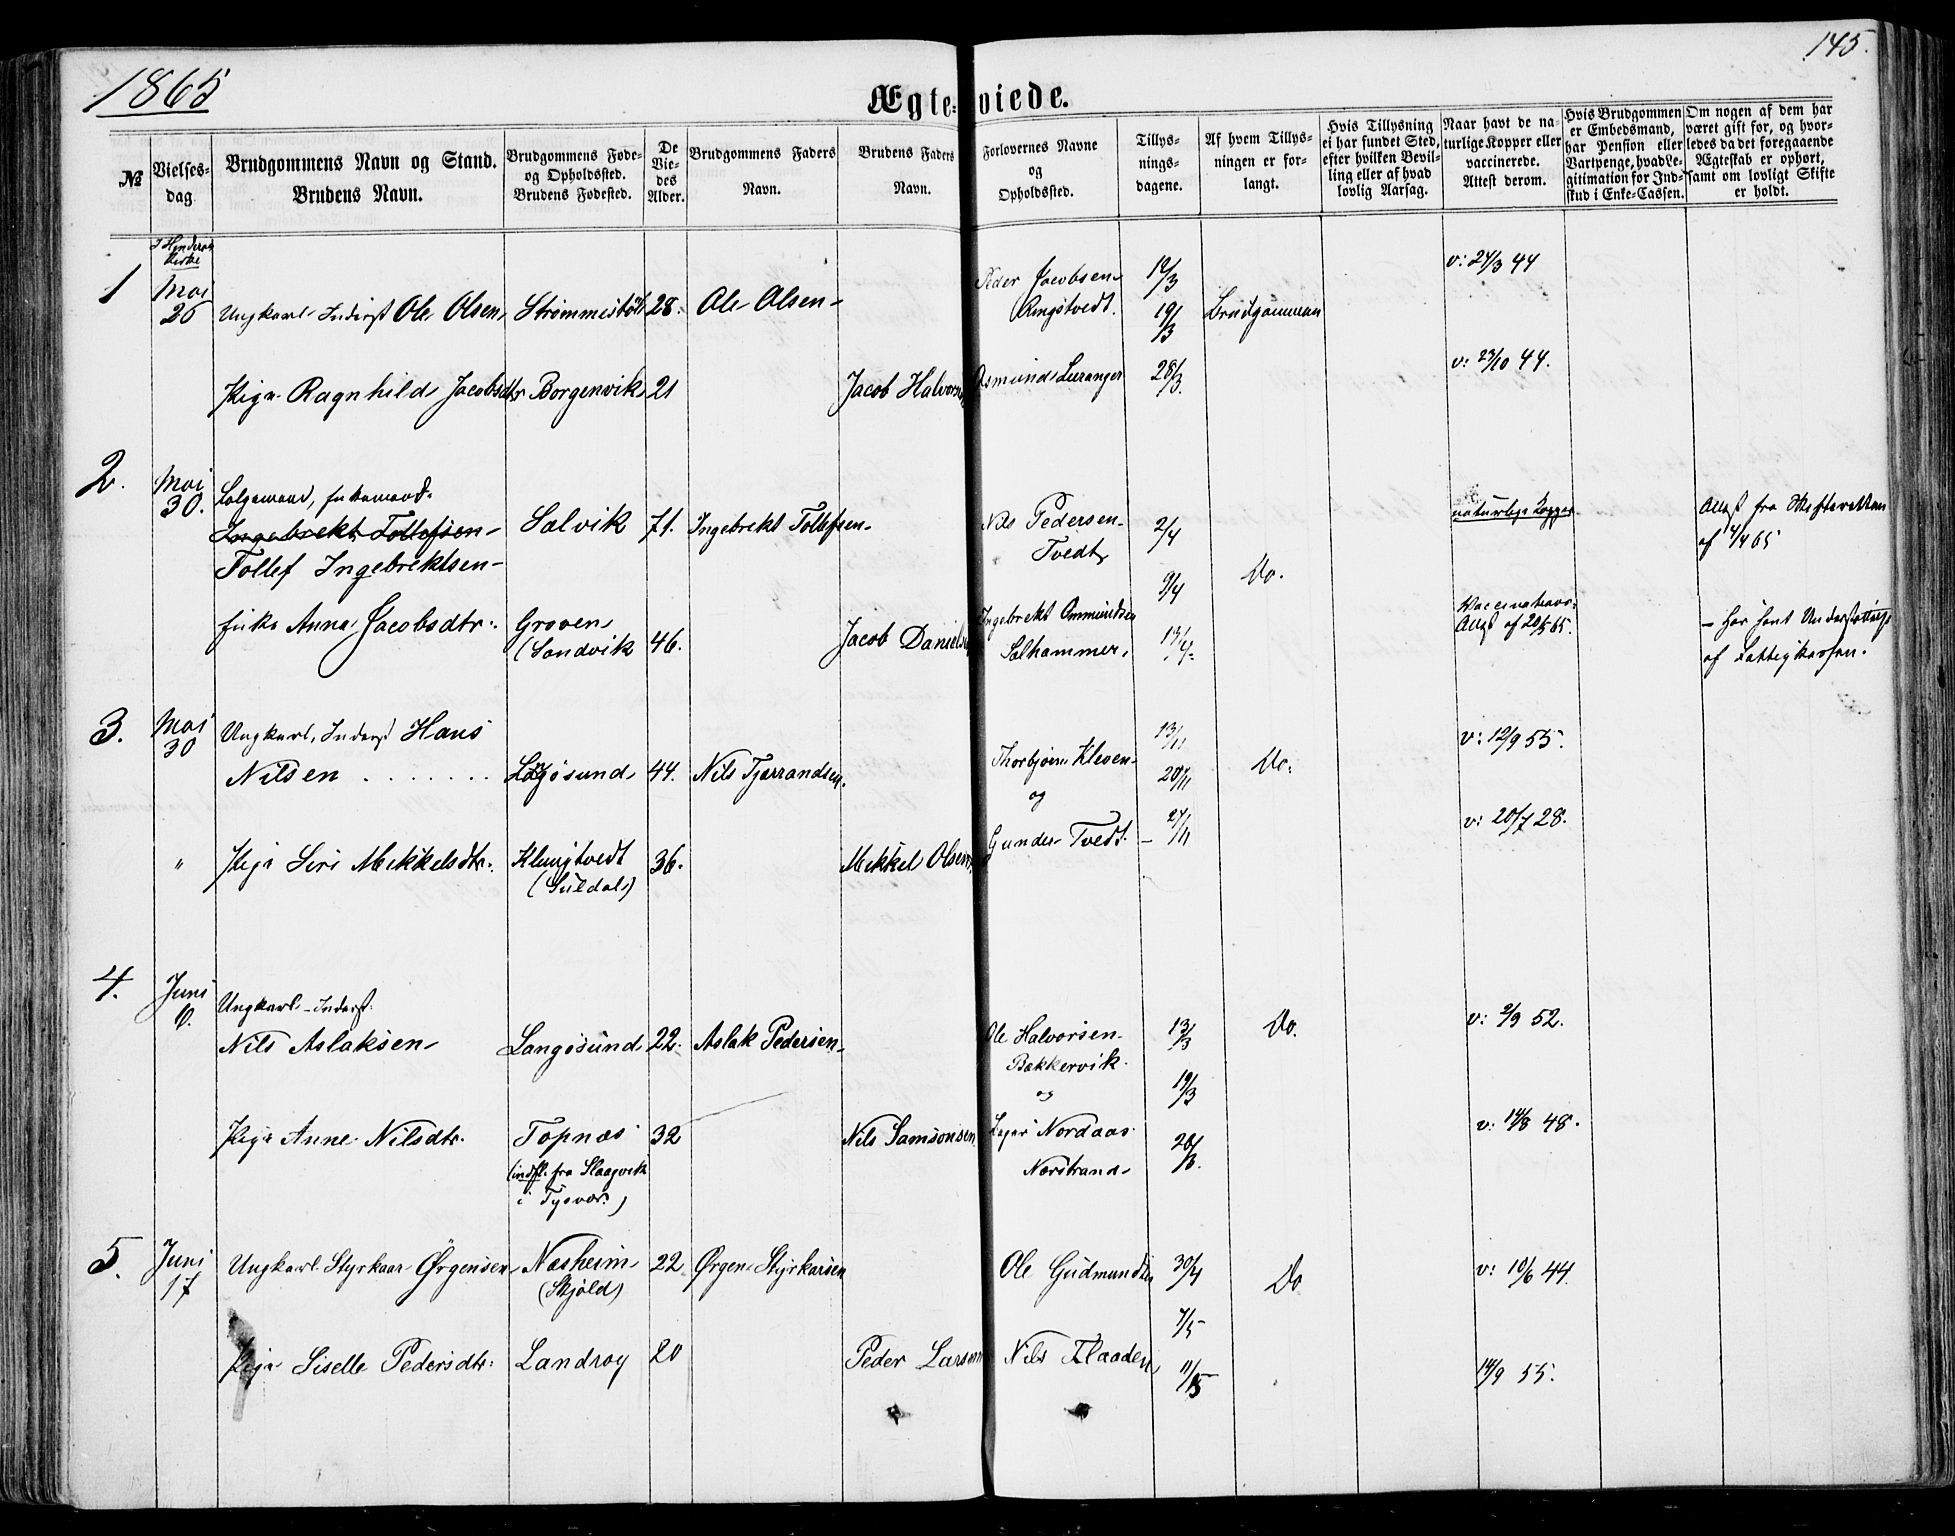 1865
145.
Ægteviede.
№
Vielses-
dag
Brudgommens Navn og Stand.
Brudens Navn.
Brudgommens Føde-
og Opholdssted.
Brudens Fødested.
De
Vie-
des
Alder.
Brudgommens Faders
Navn.
Brudens Faders
Navn.
Forlovernes Navne
og
Opholdssted.
Tillys-
nings-
dagene.
Af hvem Tillys-
ningen er for-
langt.
Hvis Tillysning
ei har fundet Sted,
efter hvilken Bevil-
ling eller af hvad
lovlig Aarsag.
Naar havt de na-
turlige Kopper eller
vaccinerede.
Attest derom.
Hvis Brudgommen
er Embedsmand,
har Pension eller
Vartpenge, hvad Le-
gitimation for Ind-
skud i Enke-Cassen.
Om nogen af dem har
været gift før, og hvor-
ledes da det foregaaende
Ægteskab er ophørt,
samt om lovligt Skifte
er holdt.
1
Kirke
Mai
26
Ungkarl Inderst Ole Olsen
28.
Ole Olsen
Peder Jacobsen
Ringstvedt.
12/3
19/3
Brudgommen
v: 24/3 44
Pige Ragnhild Jacobsdtr
Borgenvik
21
Jacob Halvorsen
Osmund Leeranger
28/3.
v: 23/10 44.
2.
Mai
30.
Enkemand
Ingebrekt Tollefsen
Tollef Ingebrektsen
Salvik
71.
Ingebrekt Tollefsen
Nils Pedersen
Tvedt
2/4
9/4
Do.
naturlige Kopper
Attest fra Skifteretten
af 4/4 65
Enke Anna Jacobsdtr.
Groven
(Sandvik
46.
Jacob Danielsen
Ingebrekt Ommundsen
Salhammer
13/4
Vaccinations-
Attest af 20/5 65.
- Har havt Understøttelse
af Fattigkassen.
3.
Mai
30
Ungkarl, Inderst Hans
Nilsen
44.
Nils Tjerrandsen.
Thorbjørn Kleven
og
Gunder Tvedt.
13/11
20/11
27/11
Do.
v: 12/9 55.
"
Pige Siri Mikkelsdtr.
Klungtvedt
(Suldal)
36.
Mikkel Olsen
v: 20/7 28.
4.
Juni
6.
Ungkarl - Inderst.
Nils Aslaksen
Langøsund
22.
Aslak Pedersen
Ole Halvorsen
Bakkervik
og
13/3
19/3
Do.
v: 2/9 52.
Pige Anne Nilsdtr.
Topnæs
(indfl. fra Slaagvik
i Tysvær.)
32
Nils Samsonsen
Nordaas
Norstrand
28/3.
v: 14/8 48.
5.
Juni
17
Ungkarl Styrkaar Ørgensen
Næsheim
(Skjold)
22
Ørgen Styrkarsen
Ole Gudmundsen
30/4
7/5
Do
v: 10/6 44.
Pige Siselle Pedersdtr.
Landrøy
20
Peder Larsen
Nils Flaaden
11/5
14/9 55.